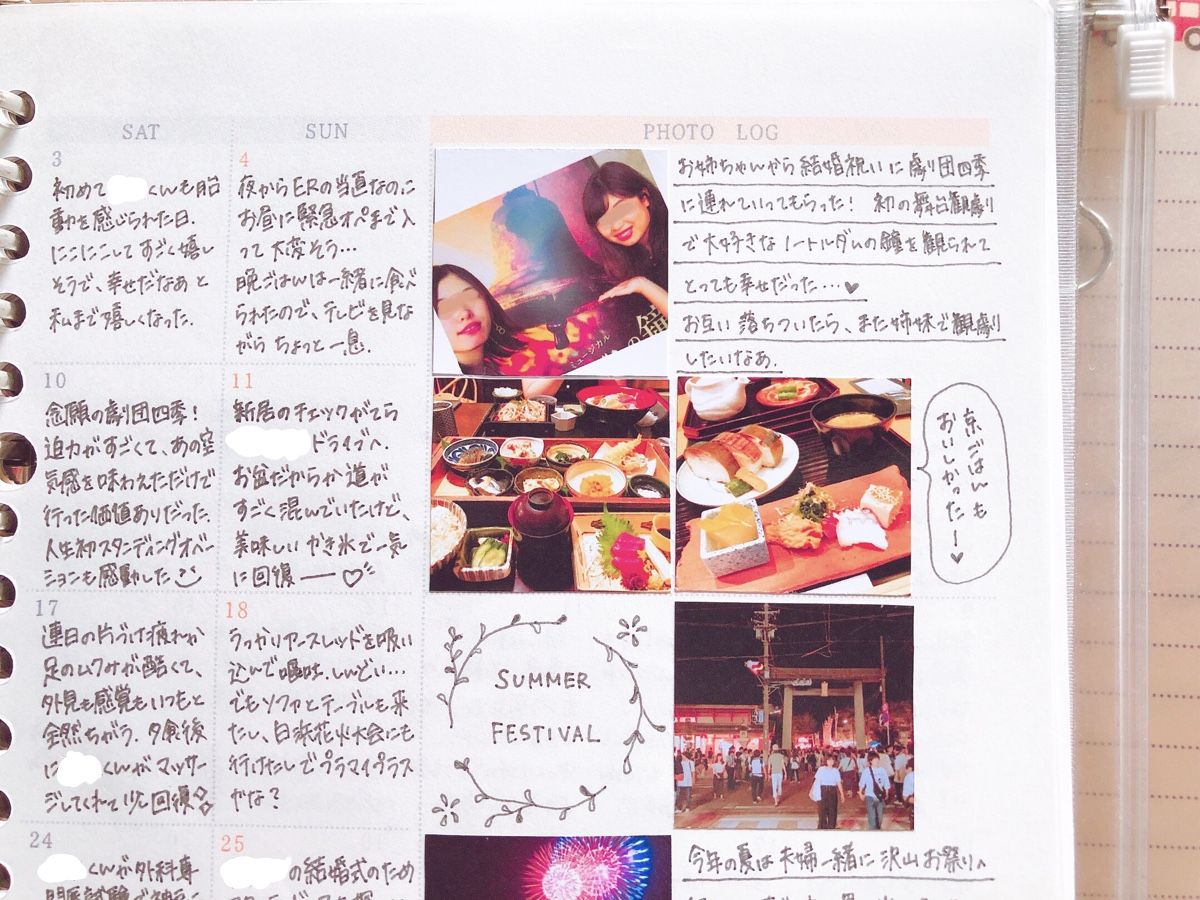 SAT
SUN
PHOTO LOG
3
初めて くんも胎
動を感じられた日.
にこにこしてすごく嬉し
そうで、幸せだなぁと
私まで嬉しくなった.
4
夜からERの当直なのに
お昼に緊急オペまで入
って大変そう…
晩ごはんは一緒に食べ
られたので、テレビを見な
がらちょっと一息.
ミュージカル
の鐘
お姉ちゃんから結婚祝いに劇団四季
に連れていってもらった! 初の舞台観劇
で大好きなノートルダムの鐘を観られて
とっても幸せだった…♥
お互い落ちついたら、また姉妹で観劇
したいなぁ.
10
念願の劇団四季!
迫力がすごくて、あの空
気感を味わえただけで
行った価値ありだった.
人生初スタンディングオベー
ションも感動した
11
新居のチェックがてら
ドライブへ.
お盆だからか道が
すごく混んでいたけど、
美味しいかき氷で一気
に回復──♡
京ごはんも
おいしかったー♥
17
連日の片づけ疲れか
足のムクみが酷くて、
外見も感覚もいつもと
全然ちがう. 夕食後
に くんがマッサー
ジしてくれて少し回復
18
うっかりアースレッドを吸い
込んで嘔吐.しんどい…
でもソファとテーブルも来
たし、白浜花火大会にも
行けたしでプラマイプラス
かな?
SUMMER
FESTIVAL
24
くんが外科専
25
の結婚式のため
今年の夏は夫婦一緒に沢山お祭りへ